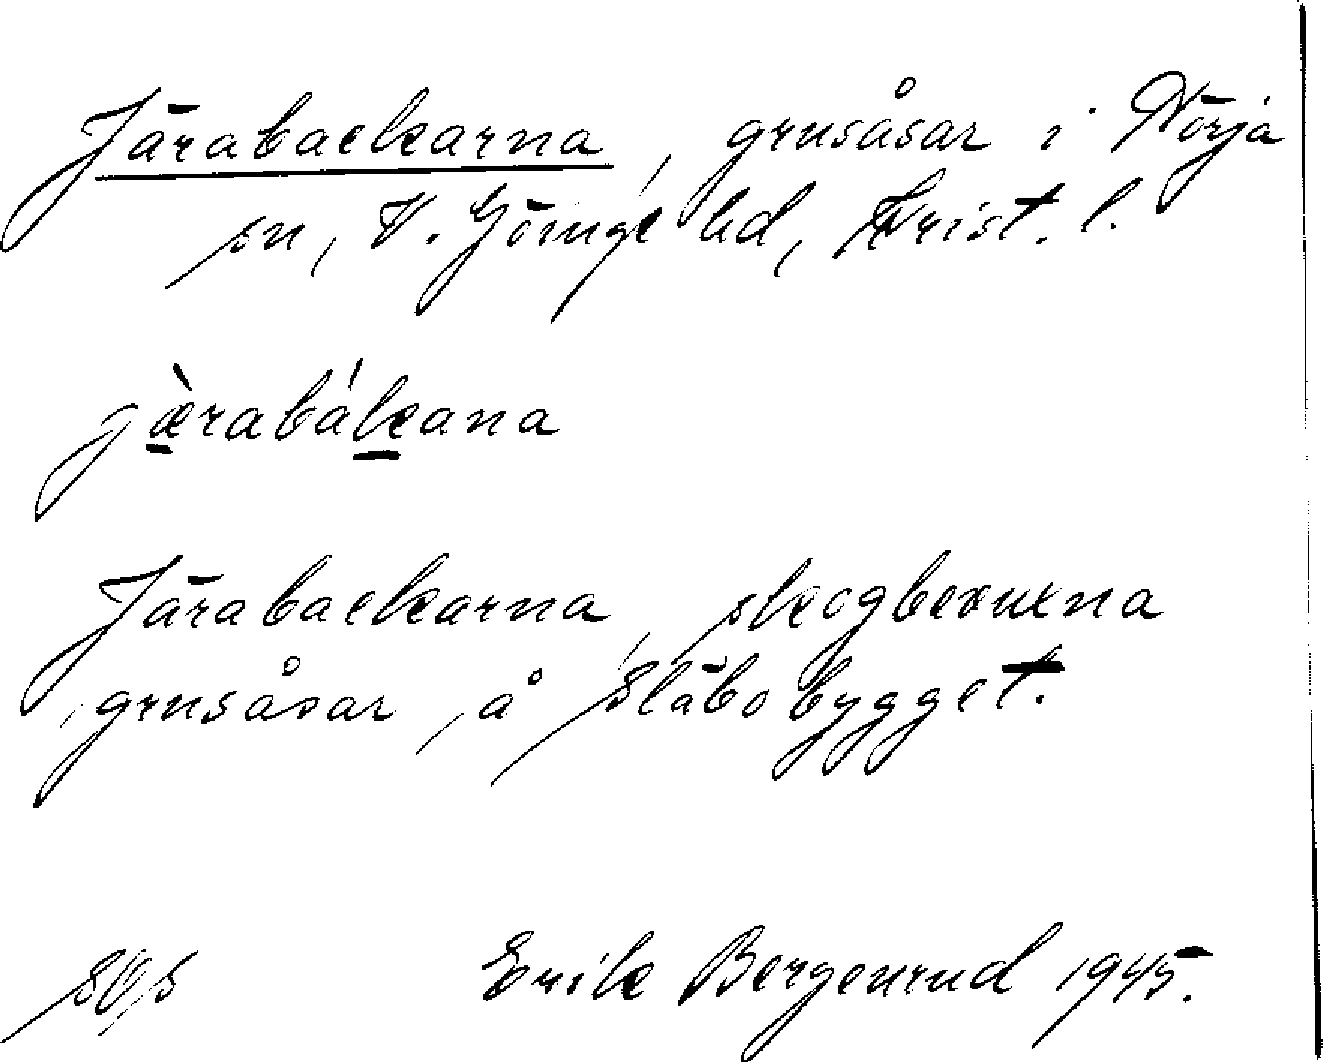 Järabackarna, grusåsar i Nörja
sn, V. Göinge hd, Krist. l.
jæ̀rabákana
Järabackarna, skogbevuxna
grusåsar, å Släbobygget.
Erik Bergenrud 1945.